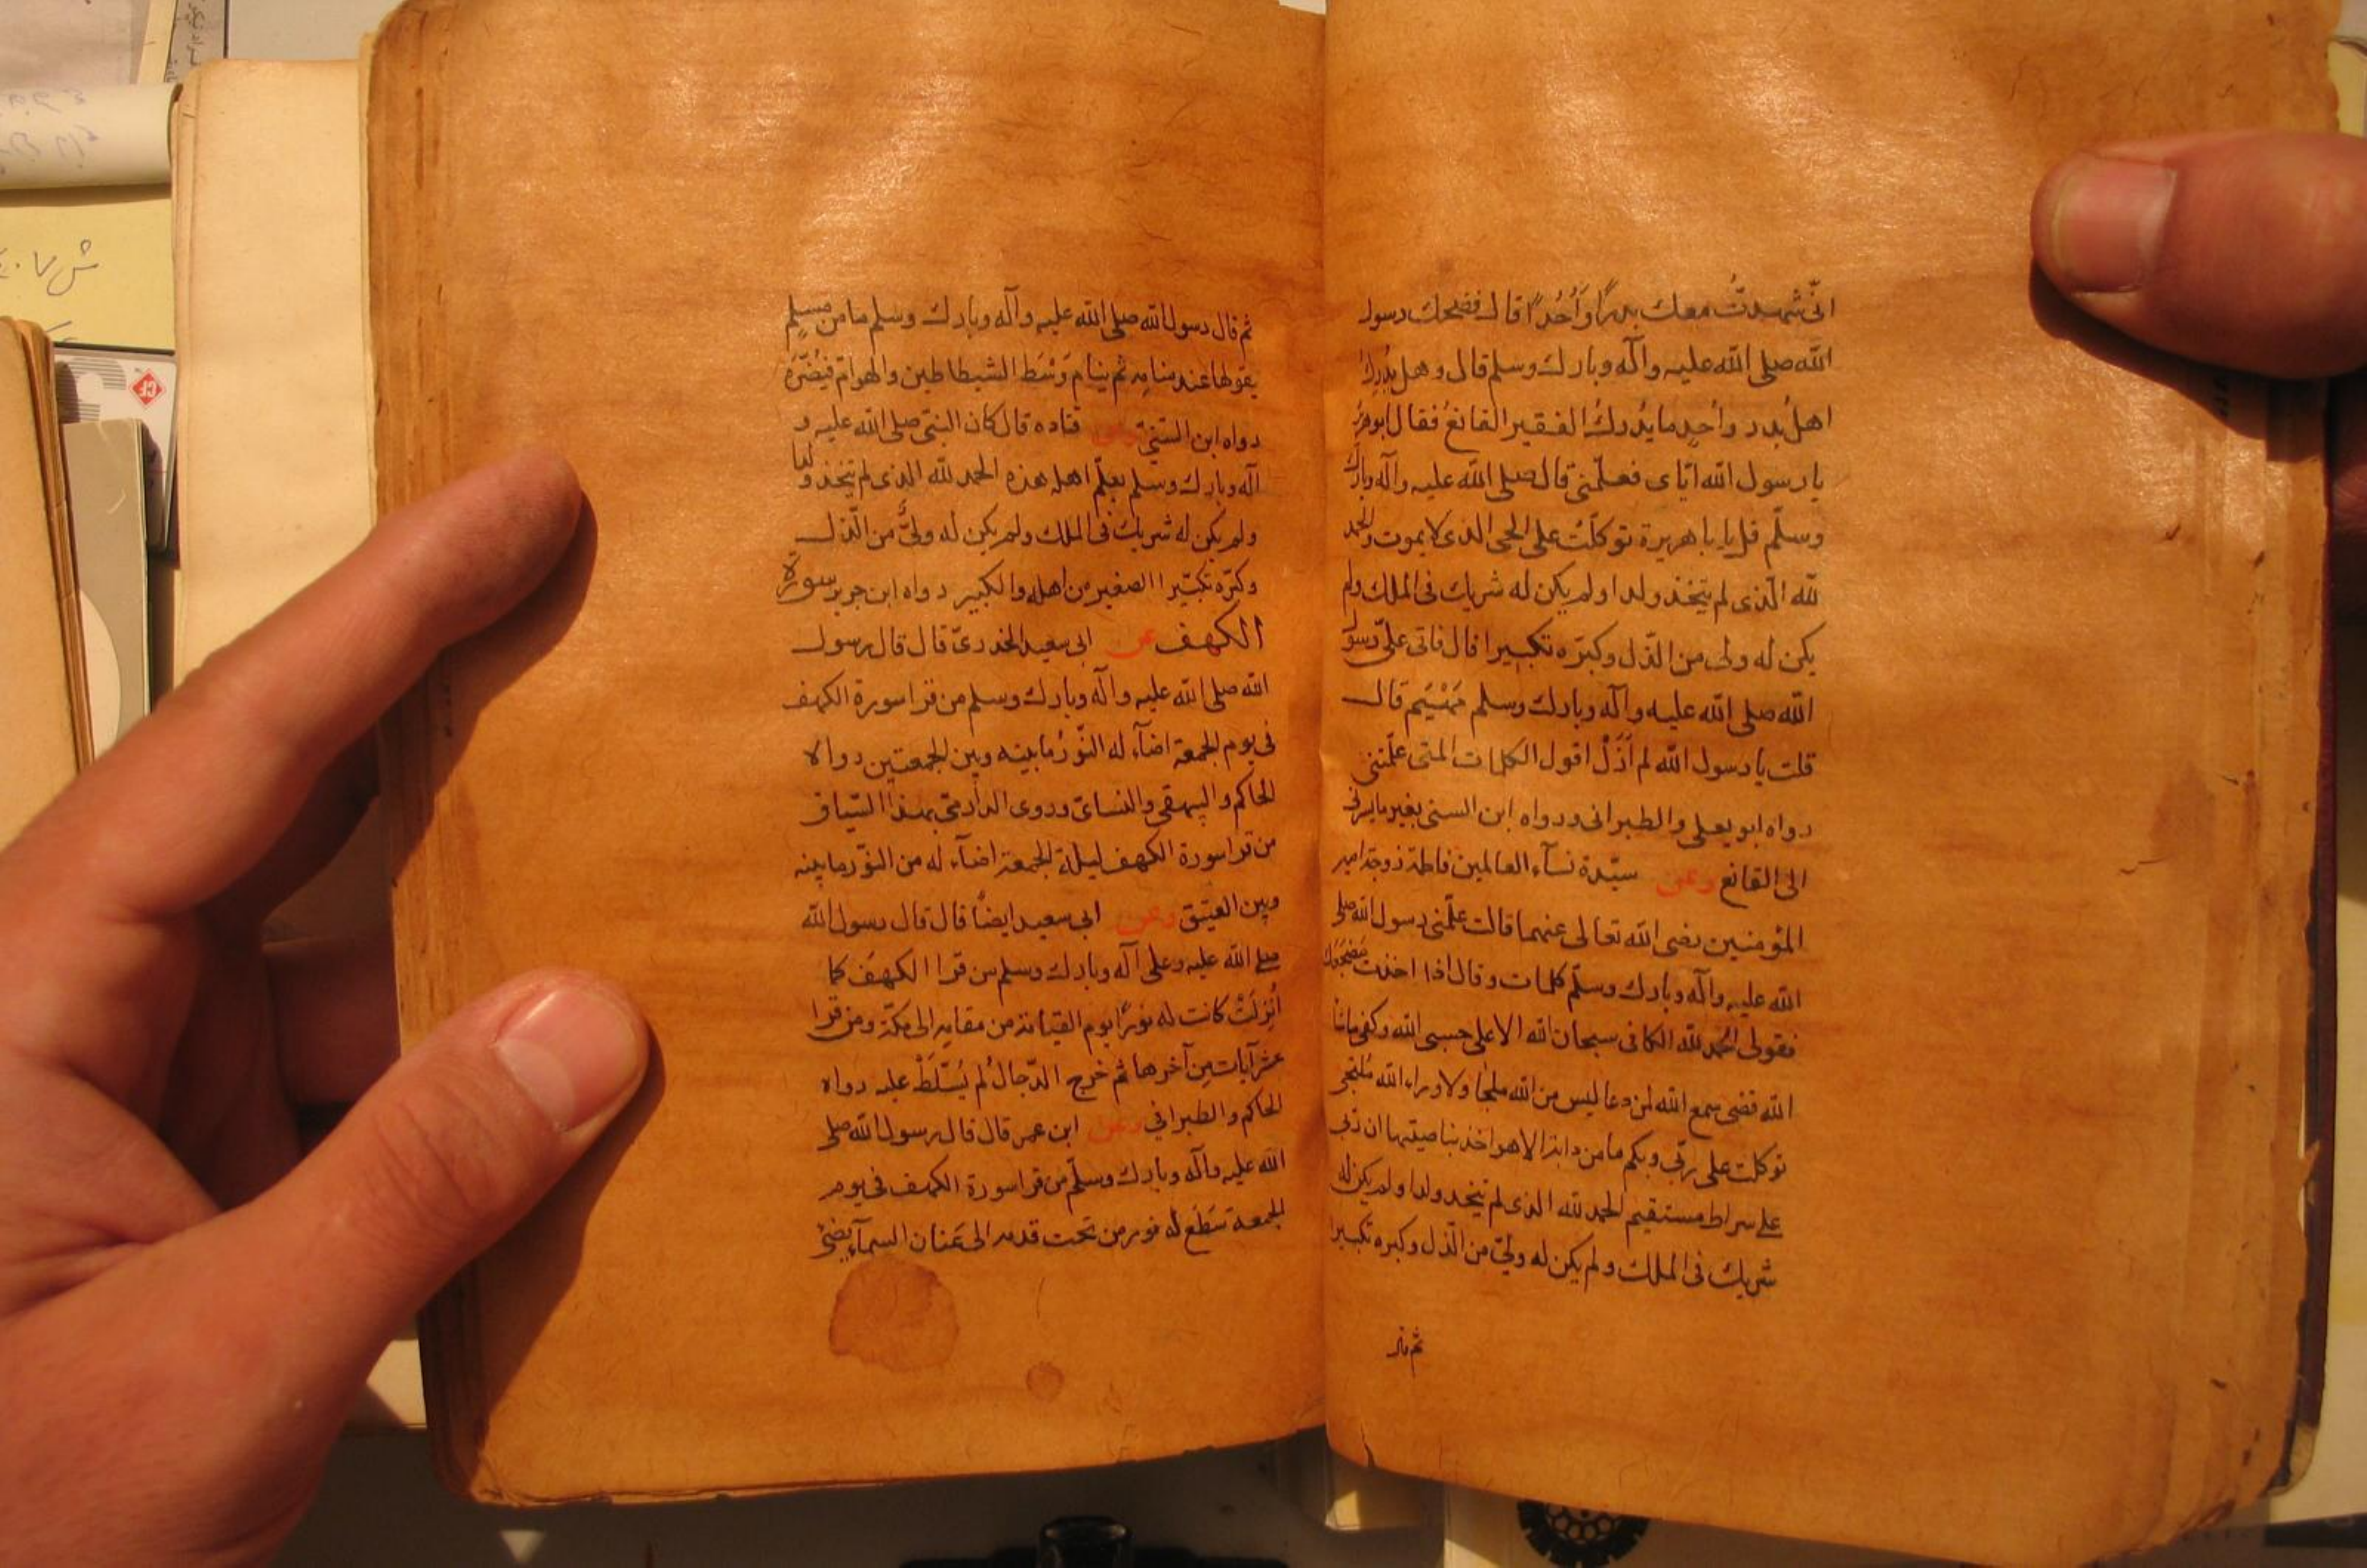 انّى شهدتُ معك بدرًا وَأُحُدًا قال فضحك رسول
الله صلى الله عليه وآله وبارك وسلم قال وهل يُدرِكُ
اهلُ بدر وأحدٍ ما يُدركُ الفقير القانعُ فقال ابوهرَ
يا رسول الله ايّاى فعلّمنى قال صلى الله عليه وآله وبارك
وسلّم قل يا با هريرة توكلّتُ على الحى الذى لا يموت والحمد
لله الّذى لم يتّخذ ولدا ولم يكن له شريك فى الملك ولم
يكن له ولى من الذّل وكبّره تكبيرا قال فاتى علىّ رسول
الله صلى الله عليه وآله وبارك وسلم قال
قلت يا رسول الله لم اَزَلْ اقول الكلمات التى علّمتنى
رواه ابو يعلى والطبرانى ورواه ابن السنى بغير
الى القانع وعن سيّدة نسآء العالمين فاطمة زوجة امير
المؤمنين رضى الله تعالى عنهما قالت علّمنى رسول الله صلى
الله عليه وآله وبارك وسلّم كلمات وقال اذا اخذت مَضجَعَك
فقولى الحمد لله الكافى سبحان الله الاعلى حسبى الله وكفى ماشآ
الله قضى سمع الله لمن دعا ليس من الله ملجا ولا وراء الله مُلتجى
توكلت على ربّى وربكم ما من دابة الا هو اخذ بناصيتها ان ربى
على سراط مستقيم الحمد لله الذى لم يتخد ولدا ولم يكن له
شريك فى الملك ولم يكن له ولىّ من الذّل وكبره تكبيرا
ثم قال
ثم قال رسول الله صلى الله عليه وآله وبارك وسلم ما من مسلم
يقولها عند منامه ثم ينام وَسَط الشيطاطين والهوام فيضُرّهُ
رواه ابن السّنىّ وعن قتاده قال كان النبىّ صلى الله عليه و
آله وبارك وسلم يعلّم اهله هذه الحمد لله الذى لم يتخذ ولدا
ولم يكن له شريك فى الملك ولم يكن له ولىٌّ من الّذل
وكبّره تكبّيرا الصغير من اهله والكبير رواه ابن جرير سورة
الكهف عن ابى سعيد الخدرىّ قال قال رسول
الله صلى الله عليه وآله وبارك وسلم من قرا سورة الكهف
فى يوم الجمعة اضآء له النّورُ ما بينه وبين الجمعتين رواه
الحاكم والبيهقى والنسائ وروى الدارمىّ بهذا السّياق
من قرا سورة الكهف ليلة الجمعة اضآء له من النوّر ما بينه
وبين العتيق وعن ابى سعيد ايضًا قال قال رسول الله
صلى الله عليه وعلى آله وبارك وسلم من قرا الكهفَ كما
أُنزِلَتْ كانت له نورًا يوم القيامة من مقامه الى مكّة ومن قرا
عشر آيات مِن آخرها ثم خرج الدّجالُ لم يُسَّلَطْ عليه رواه
الحاكم والطبرانى وعن ابن عمر قال قال رسول الله صلى
الله عليه وآله وبارك وسلّم من قرا سورة الكهف فى يوم
الجمعة سَطَعَ له نور من تحت قدمه الى عَنان السمآء يضئ